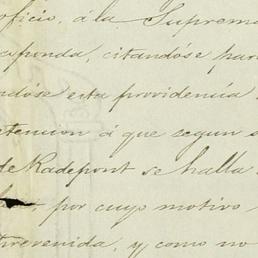 oficio, á la Suprema
esponda, citandóse para
ndóse esta providencia
etencion á que segun
de Radepont se halla
por cuyo motivo
prevenida, y como no